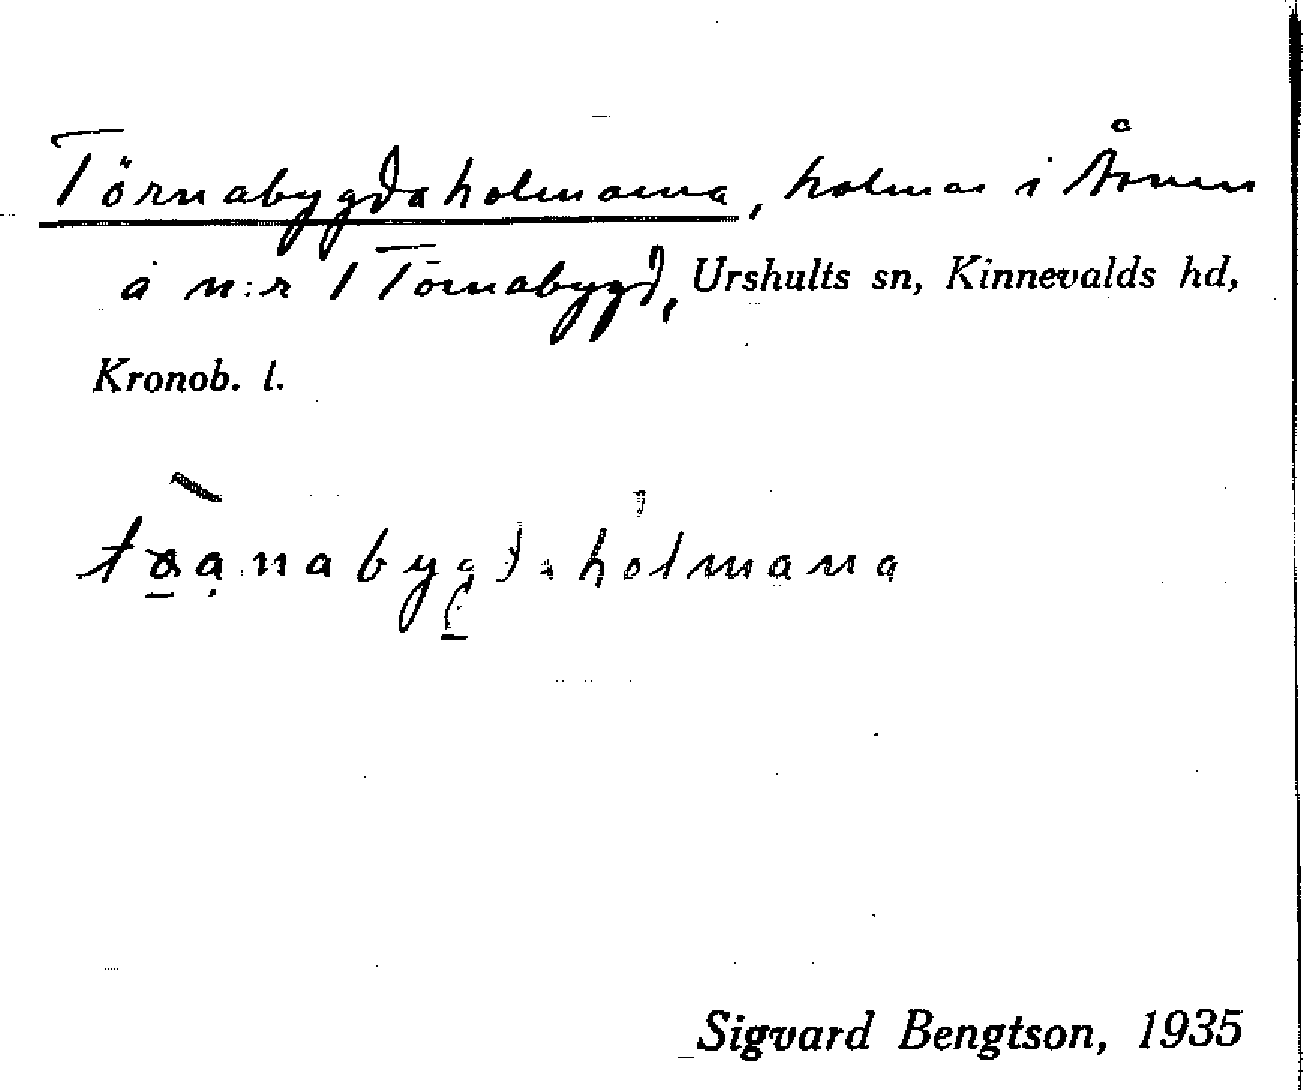 Törnabygdaholmarna, holmar i Åsnen
å n:r 1 Törnabygd, Urshults sn, Kinnevalds hd,
Kronob. l.
Sigvard Bengtson, 1935